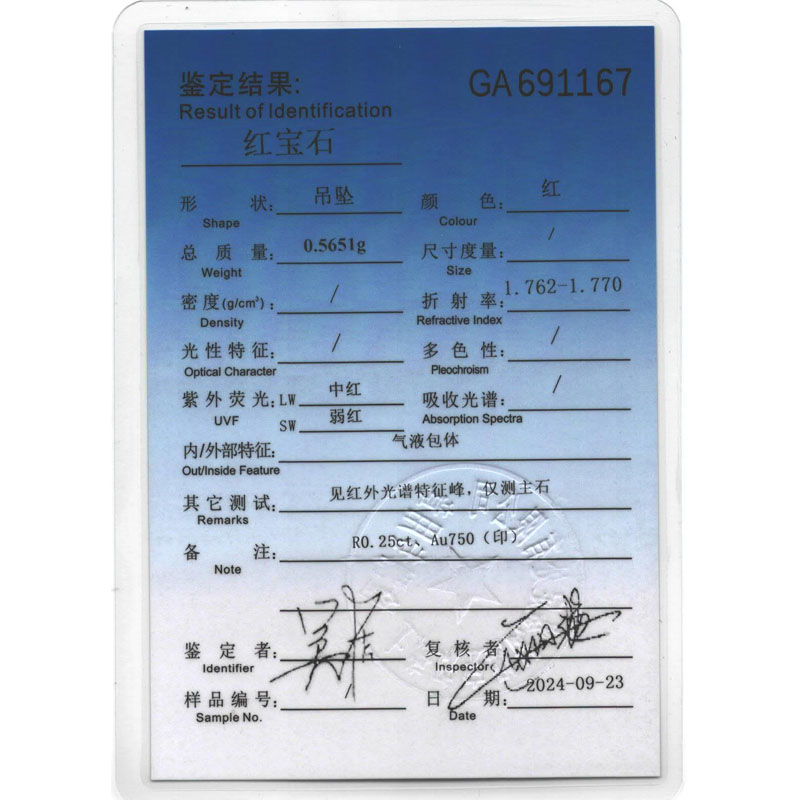 鉴定结果: GA691167
Result of Identification
红宝石
形 状: 吊坠 颜 色: 红
Shape Colour
总 质 量: 0.5651g 尺寸度量: /
Weight Size
密度(g/cm³): / 折 射 率: 1.762-1.770
Density Refractive Index
光性特征: / 多 色 性: /
Optical Character Pleochroism
紫外荧光: LW 中红 吸收光谱: /
UVF SW 弱红 Absorption Spectra
内/外部特征: 气液包体
Out/Inside Feature
其它测试: 见红外光谱特征峰，仅测主石
Remarks
备 注: R0.25ct、Au750（印）
Note
鉴 定 者: 复 核 者:
Identifier Inspector
样品编号: 日 期: 2024-09-23
Sample No. Date